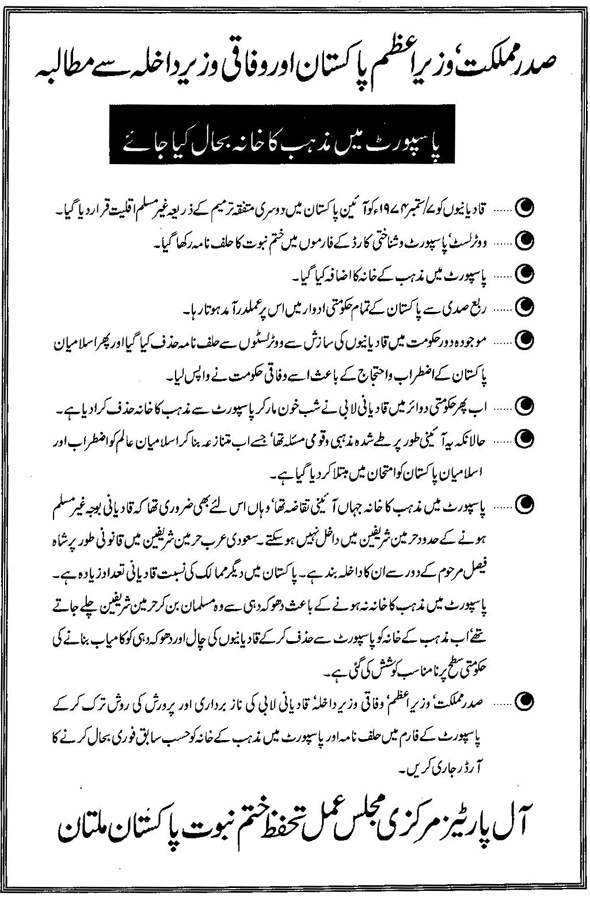 صدر مملکت، وزیر اعظم پاکستان اور وفاقی وزیر داخلہ سے مطالبہ
پاسپورٹ میں مذہب کا خانہ بحال کیا جائے
..... قادیانیوں کو ۷/ ستمبر ۱۹۷۴ء کو آئین پاکستان میں دوسری متفقہ ترمیم کے ذریعہ غیر مسلم اقلیت قرار دیا گیا۔
..... ووٹر لسٹ، پاسپورٹ و شناختی کارڈ کے فارموں میں ختم نبوت کا حلف نامہ رکھا گیا۔
..... پاسپورٹ میں مذہب کے خانہ کا اضافہ کیا گیا۔
..... ربع صدی سے پاکستان کے تمام حکومتی ادوار میں اس پر عملدرآمد ہوتا رہا۔
..... موجودہ دور حکومت میں قادیانیوں کی سازش سے ووٹر لسٹوں سے حلف نامہ حذف کیا گیا اور پھر اسلامیان
پاکستان کے اضطراب و احتجاج کے باعث اسے وفاقی حکومت نے واپس لیا۔
..... اب پھر حکومتی دوائر میں قادیانی لابی نے شب خون مار کر پاسپورٹ سے مذہب کا خانہ حذف کرا دیا ہے۔
..... حالانکہ یہ آئینی طور پر طے شدہ مذہبی و قومی مسئلہ تھا، جسے اب متنازعہ بنا کر اسلامیان عالم کو اضطراب اور
اسلامیان پاکستان کو امتحان میں مبتلا کر دیا گیا ہے۔
..... پاسپورٹ میں مذہب کا خانہ جہاں آئینی تقاضہ تھا، وہاں اس لئے بھی ضروری تھا کہ قادیانی بوجہ غیر مسلم
ہونے کے حدود حرمین شریفین میں داخل نہیں ہو سکتے۔ سعودی عرب حرمین شریفین میں قانونی طور پر شاہ
فیصل مرحوم کے دور سے ان کا داخلہ بند ہے۔ پاکستان میں دیگر ممالک کی نسبت قادیانی تعداد زیادہ ہے۔
پاسپورٹ میں مذہب کا خانہ نہ ہونے کے باعث دھوکہ دہی سے وہ مسلمان بن کر حرمین شریفین چلے جاتے
تھے، اب مذہب کے خانہ کو پاسپورٹ سے حذف کر کے قادیانیوں کی چال اور دھوکہ دہی کو کامیاب بنانے کی
حکومتی سطح پر نامناسب کوشش کی گئی ہے۔
..... صدر مملکت، وزیر اعظم، وفاقی وزیر داخلہ، قادیانی لابی کی ناز برداری اور پرورش کی روش ترک کر کے
پاسپورٹ کے فارم میں حلف نامہ اور پاسپورٹ میں مذہب کے خانہ کو حسب سابق فوری بحال کرنے کا
آرڈر جاری کریں۔
آل پارٹیز مرکزی مجلس عمل تحفظ ختم نبوت پاکستان ملتان